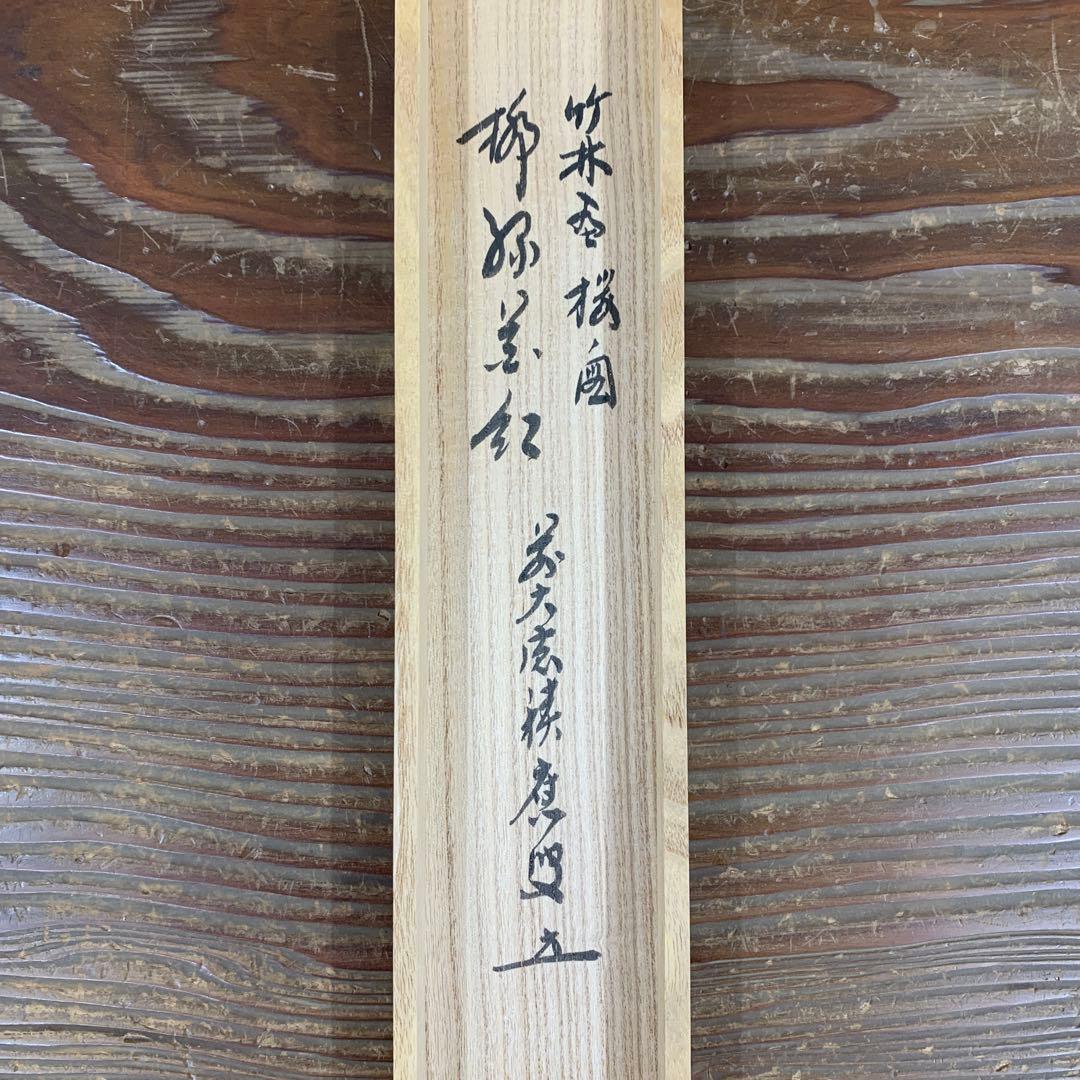 竹林図
柳緑花紅
前大徳積應叟